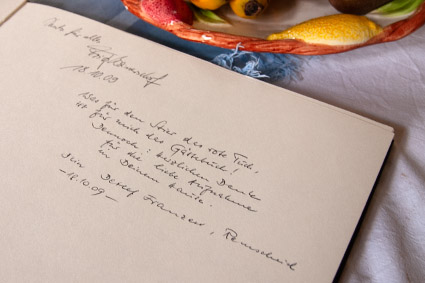 Danke für alles
18.10.09
Was für den Stier das rote Tuch,
ist für mich das Gästebuch!
Dennoch: herzlichen Dank
für die liebe Aufnahme
in Deinem Hause.
Dein Detlef Franzen, Remscheid
-18.10.09-